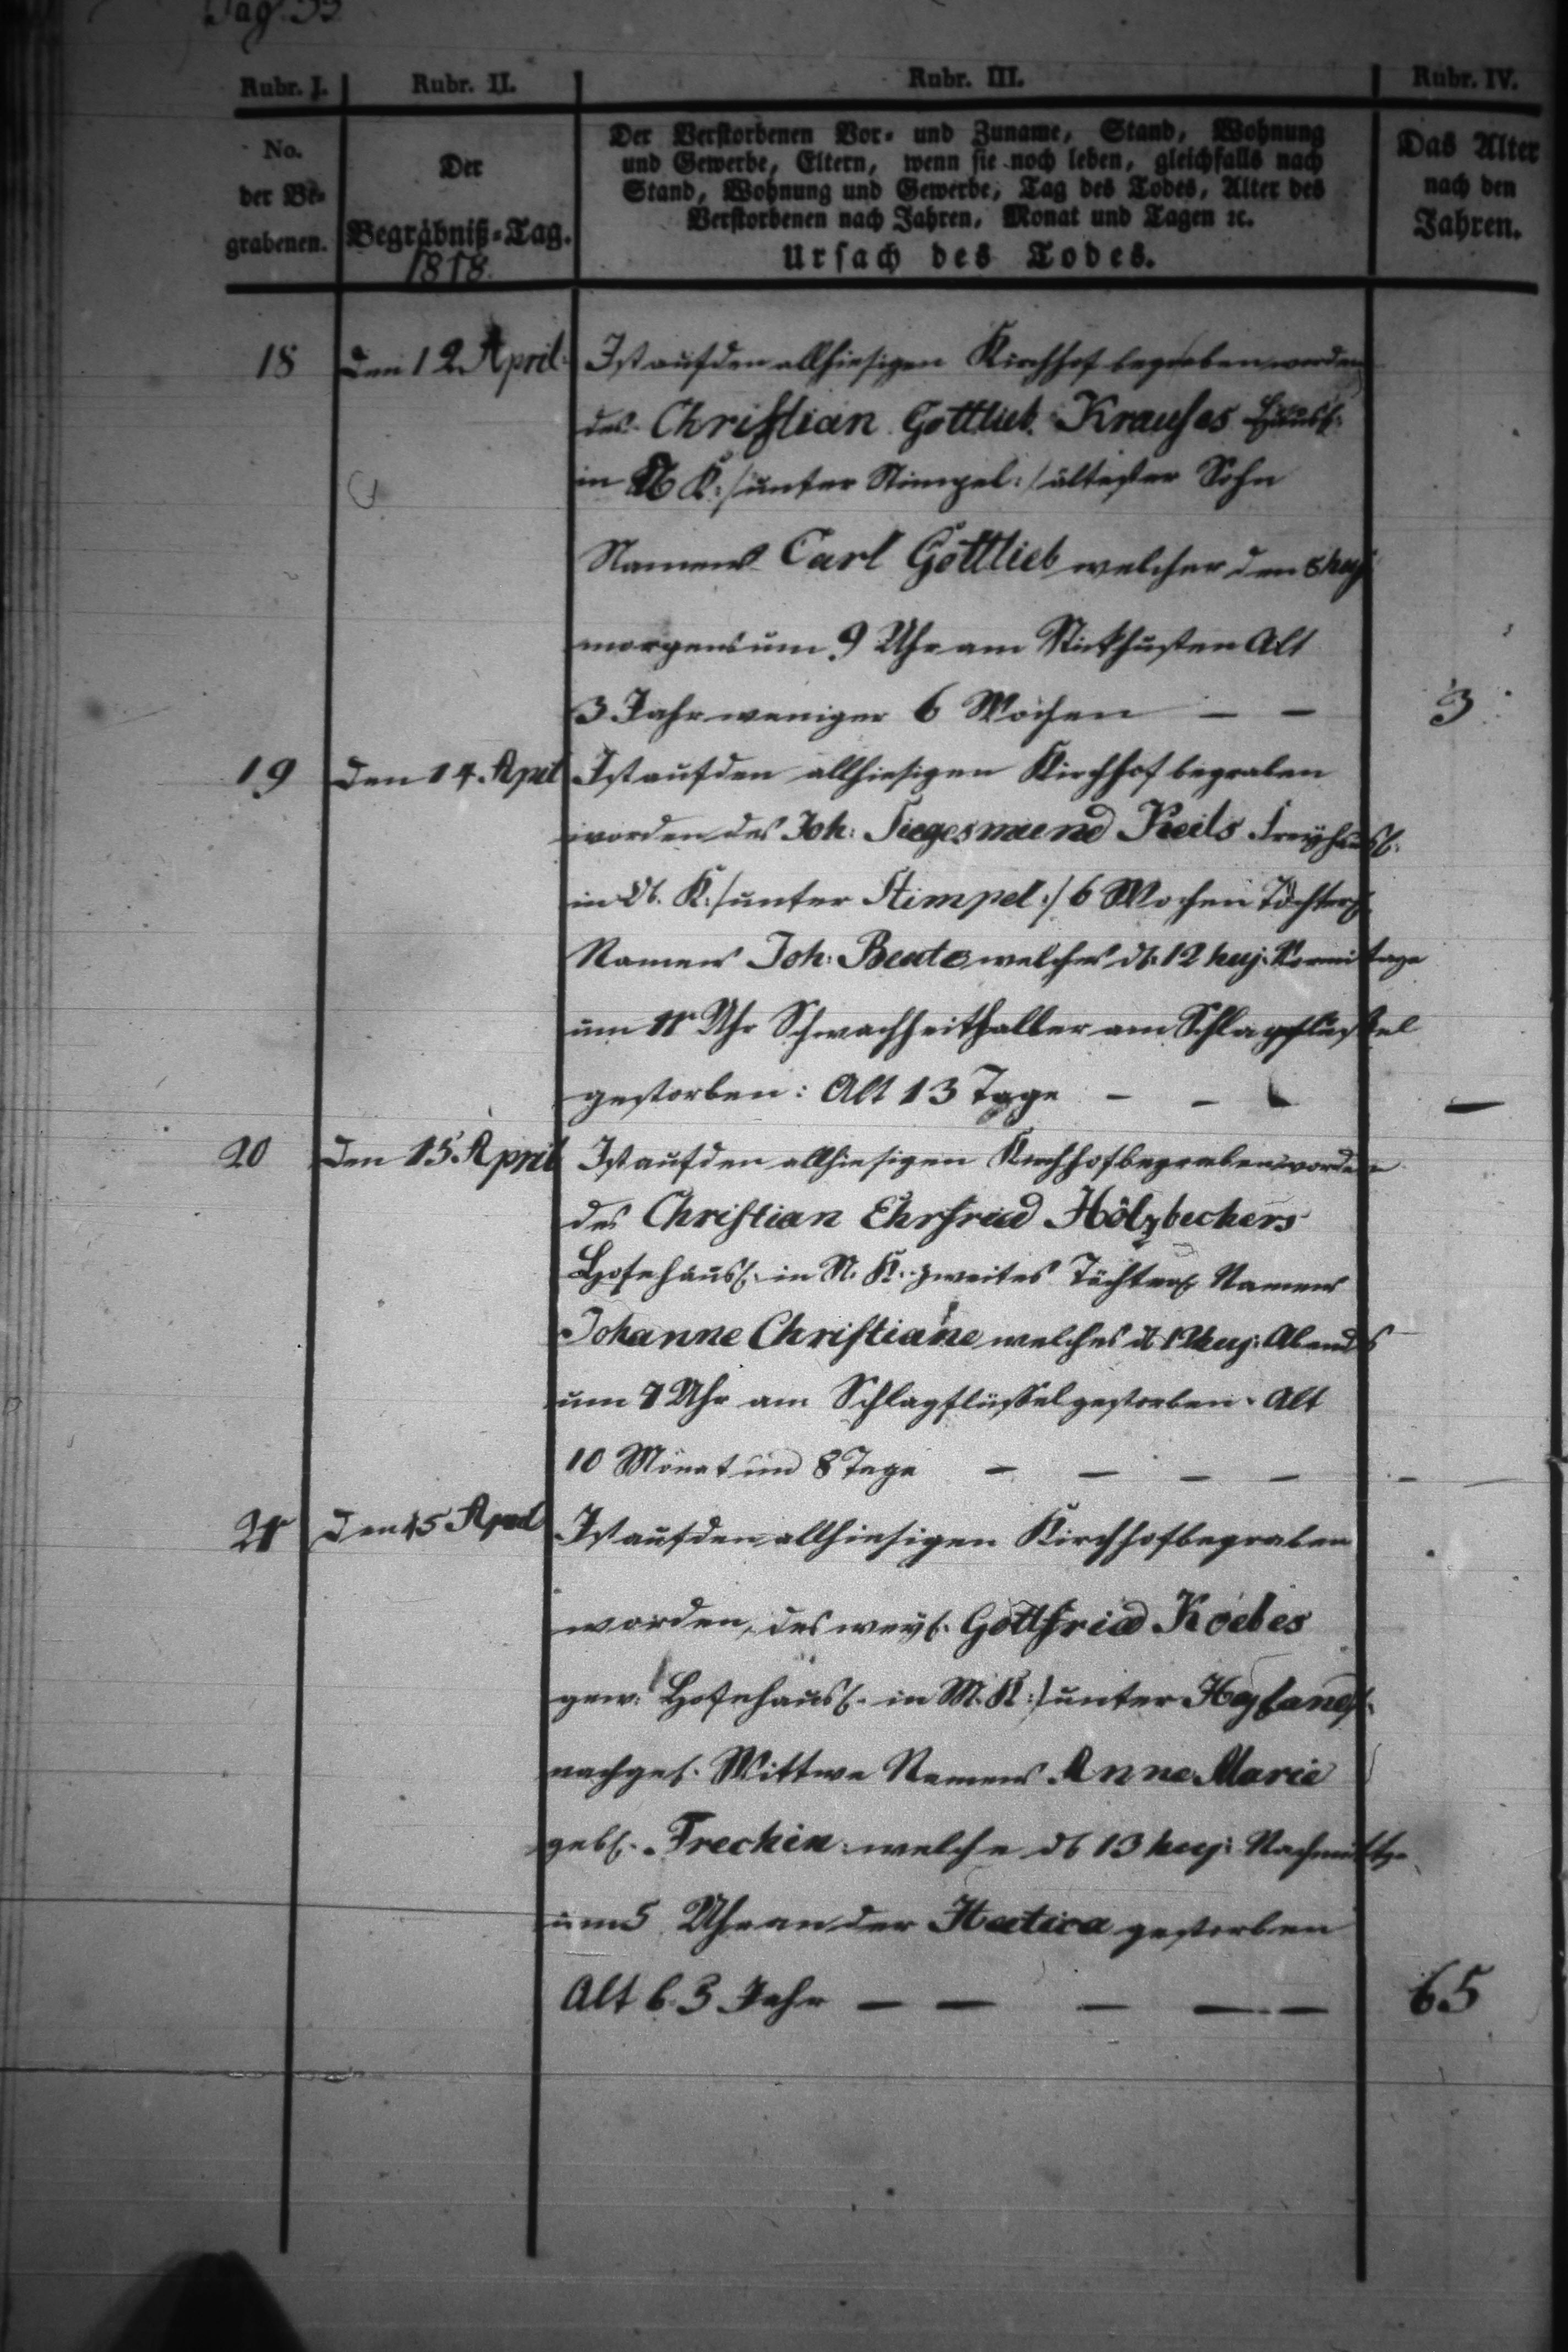 Pag. 33
Rubr. I. Rubr. II. Rubr. III. Rubr. IV.
No. der Begrabenen.
Der Begräbniß-Tag. 1818.
Der Verstorbenen Vor- und Zuname, Stand, Wohnung
und Gewerbe, Eltern, wenn sie noch leben, gleichfalls nach
Stand, Wohnung und Gewerbe, Tag des Todes, Alter des
Verstorbenen nach Jahren, Monat und Tagen ꝛc.
Ursach des Todes.
Das Alter nach den Jahren.
18 den 12 April Ist auf den allhiesigen Kirchhof begraben worden
des Christian Gottlieb Krauses Häusl.
in K:/ unter Stimpel:/ ältester Sohn
Namens Carl Gottlieb welcher den 8 huj
morgens um 9 Uhr am Stickhusten Alt
3 Jahr weniger 6 Wochen — — 3
19 den 14. April Ist auf den allhiesigen Kirchhof begraben
worden des Joh: Siegesmund Keils Freyhäusl.
in K:/ unter Stimpel:/ 6 Wochen Töchterl.
Namens Joh: Beate welches d. 12 huj. Vormittage
um 11 Uhr Schwachheithalber am Schlagflüssel
gestorben: Alt 13 Tage — — — —
20 den 15. April Ist auf den allhiesigen Kirchhof begraben worden
des Christian Ehrfried Hölzbechers
Hofehäusl. in N. K. zweites Töchterl. Namens
Johanne Christiane welches d. 12 huj: Abends
um 7 Uhr am Schlagflüssel gestorben. Alt
10 Monat und 8 Tage — — — — —
21 den 15 April Ist auf den allhiesigen Kirchhof begraben
worden, des weyl. Gottfried Koebes
gew. Hofehäusl. in M. K:/ unter
nachgel. Wittwe Namens Anne Marie
gebl. Frechin welche d. 13 huj: Nachmittge
um 5 Uhr an der Hectica gestorben
Alt 65 Jahr — — — — — 65